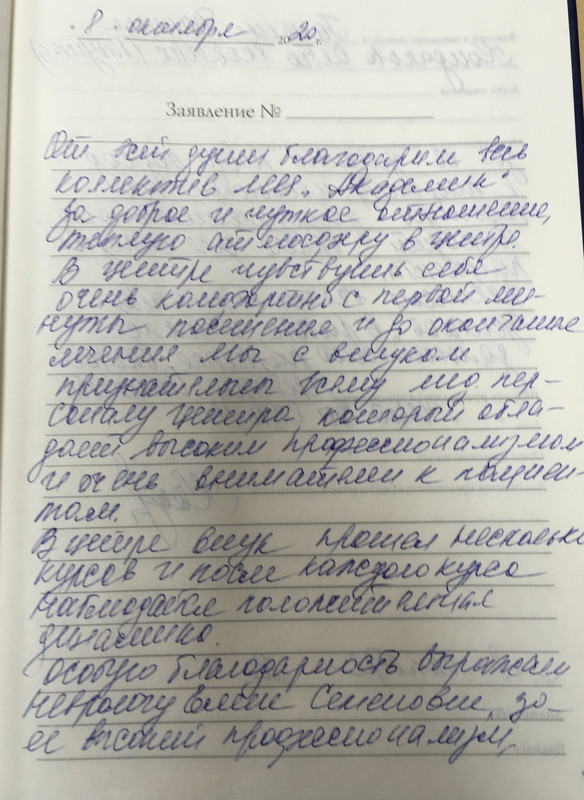 8 октября 2020 г.
Заявление №
От всей души благодарим весь
коллектив ММЦ „Академия"
за доброе и чуткое отношение,
теплую атмосферу в центре.
В центре чувствуешь себя
очень комфортно с первой ми-
нуты посещения и до окончание
лечения. Мы с внуком
признательны всему мед. пер-
соналу центра который обла-
дает высоким профессионализмом
и очень внимателен к пациен-
там.
В центре внук прошел несколько
курсов и после каждого курса
наблюдается положительная
динамика.
Особую благодарность выражаем
неврологу Елене Семеновне, за
ее высокий профессионализм,